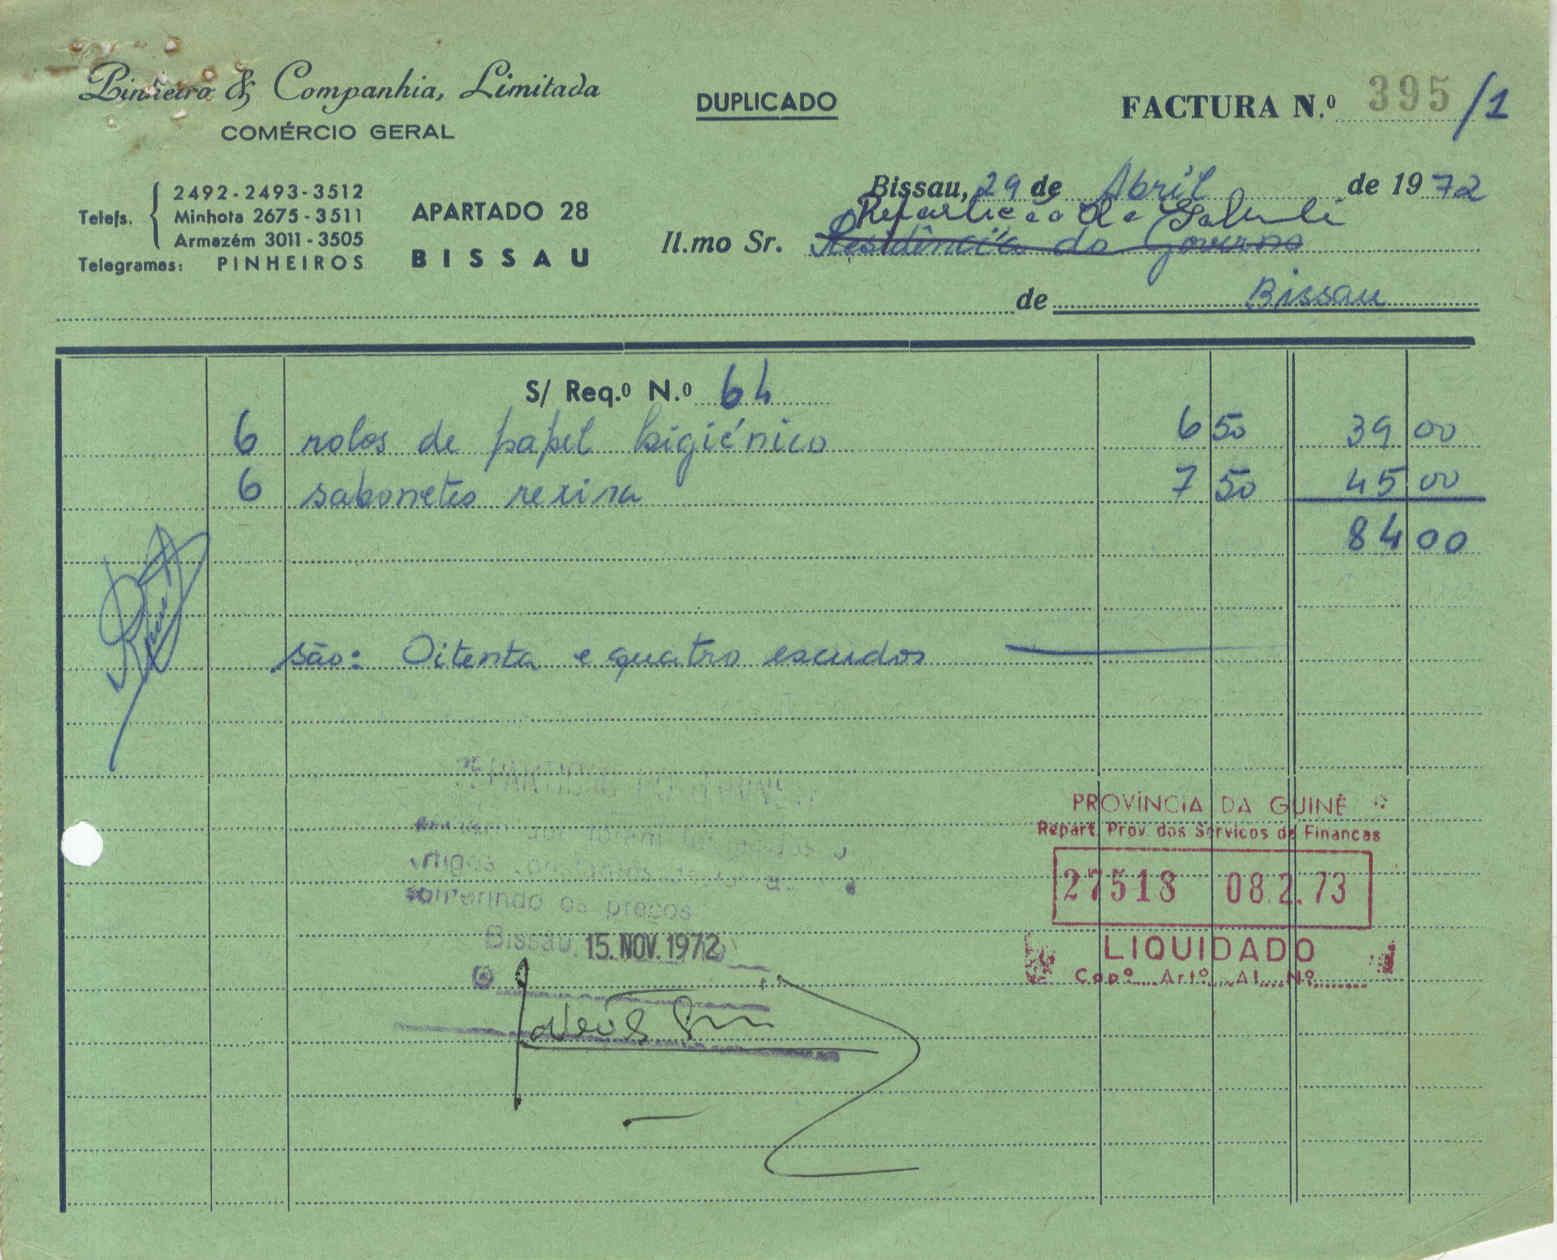 Pinheiro & Companhia, Limitada
COMÉRCIO GERAL
DUPLICADO
FACTURA N.º 395/1
Telefs. 2492-2493-3512
Minhota 2675-3511
Armazém 3011-3505
Telegramas: PINHEIROS
APARTADO 28
BISSAU
Bissau, 29 de Abril de 1972
Repartição do Gabinete
Il.mo Sr. Residência do Governo
de Bissau
S/ Req.º N.º 64
6 rolos de papel higiénico 6 50 39 00
6 sabonetes rexina 7 50 45 00
84 00
são: Oitenta e quatro escudos
os preços
Bissau, 15. NOV. 1972
O
PROVÍNCIA DA GUINÉ
Repart. Prov. dos Servicos de Financas
27518 08.2.73
LIQUIDADO
Capº.... Artº.... Al.... Nº.......